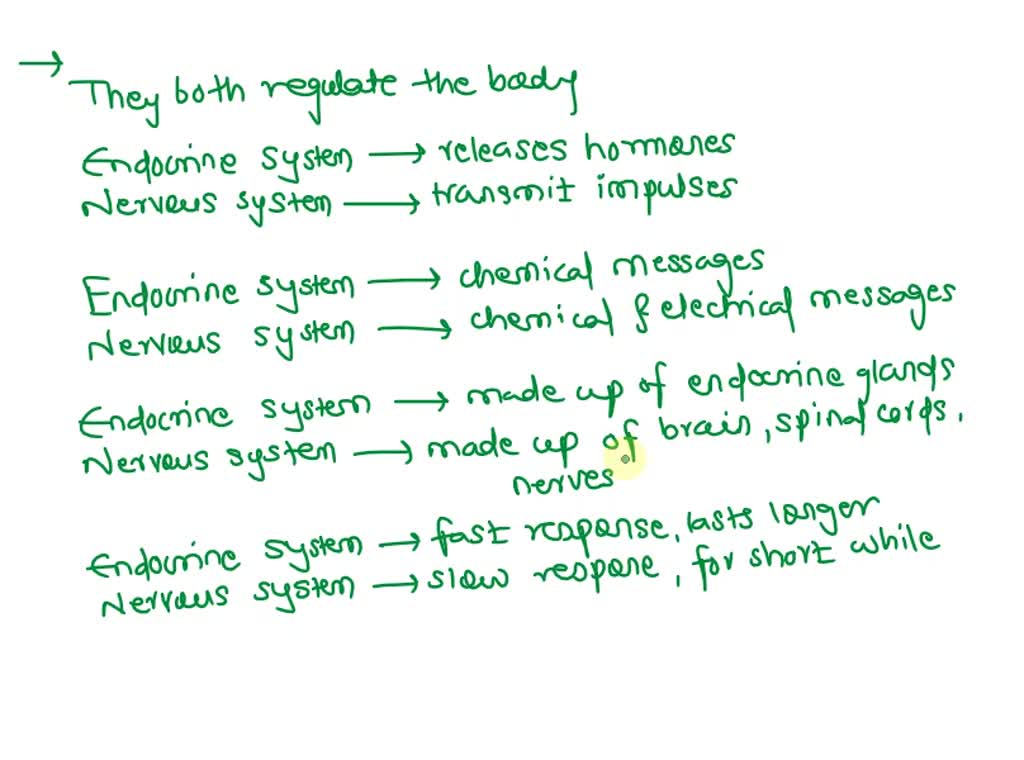 → They both regulate the body
Endocrine system → releases hormones
Nervous system → transmit impulses
Endocrine system → chemical messages
Nervous system → chemical & electrical messages
Endocrine system → made up of endocrine glands
Nervous system → made up of brain, spinal cords,
nerves
Endocrine system → fast response, lasts longer
Nervous system → slow respone, for short while